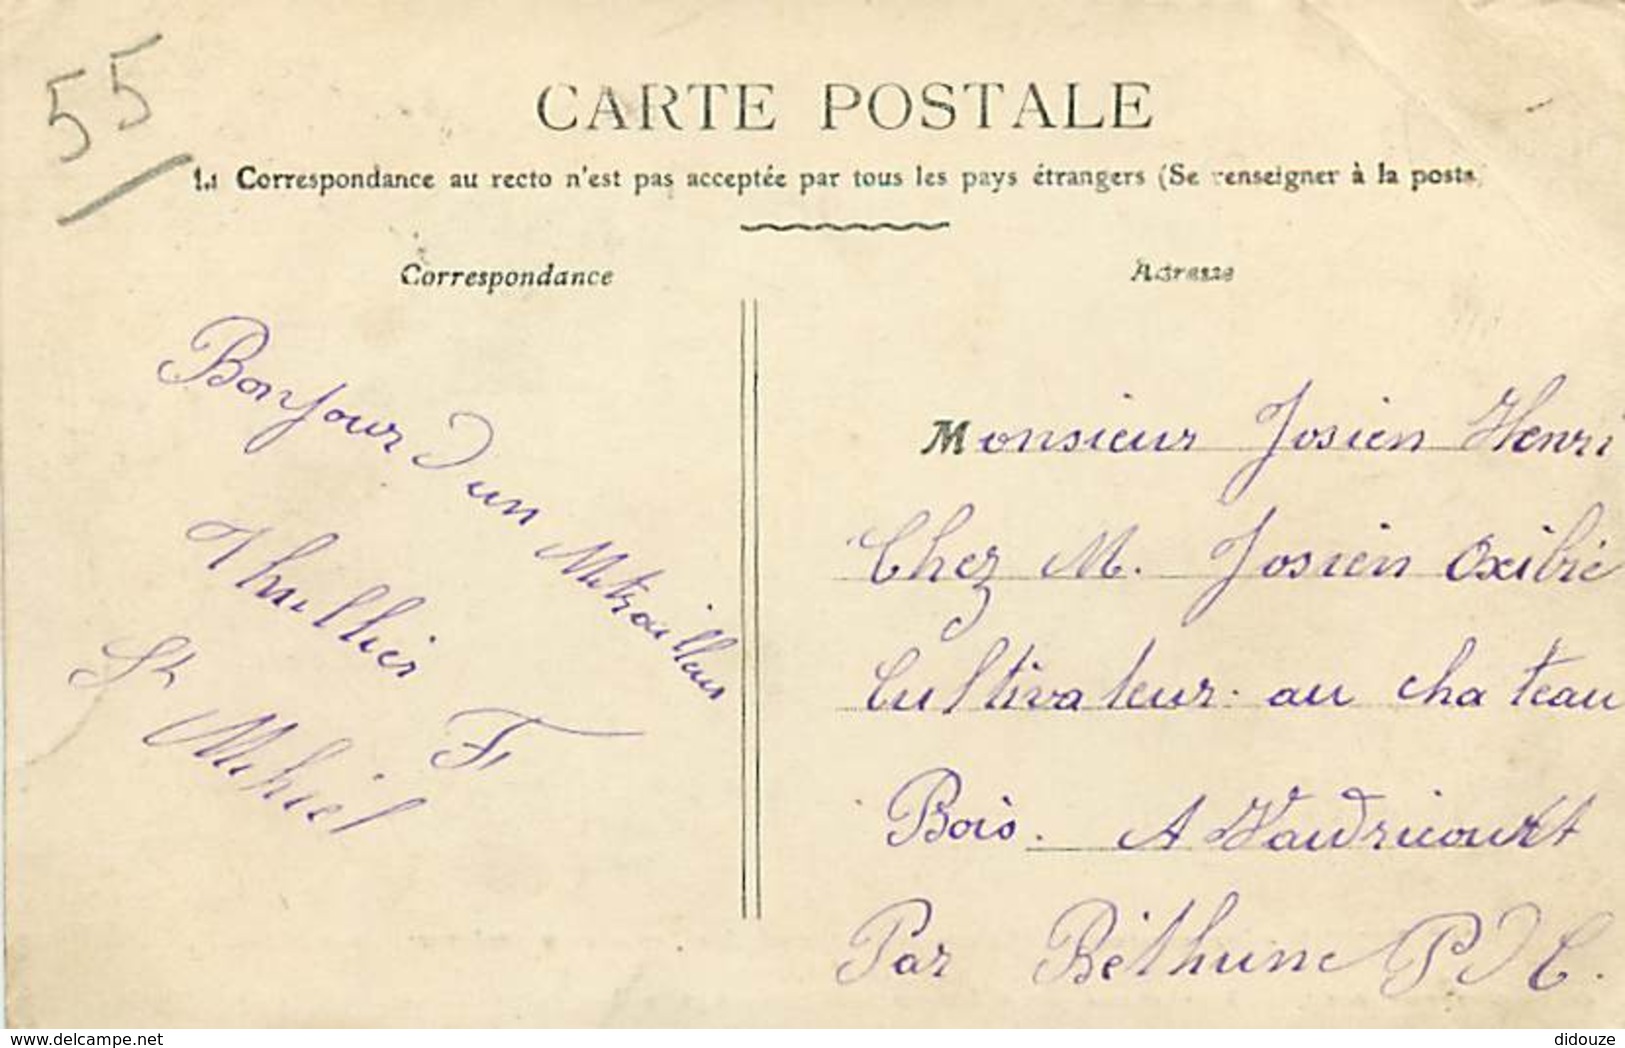 55
CARTE POSTALE
La Correspondance au recto n'est pas acceptée par tous les pays étrangers (Se renseigner à la poste)
Correspondance
Bonjour D'un Mitrailleur
Thullier F
St Mihiel
Adresse
Monsieur Josien Henri
Chez M. Josien Oxibie
Cultivateur au chateau
Bois. A Vaudricourt
Par Béthune P D C.
delcampe.net
didouze